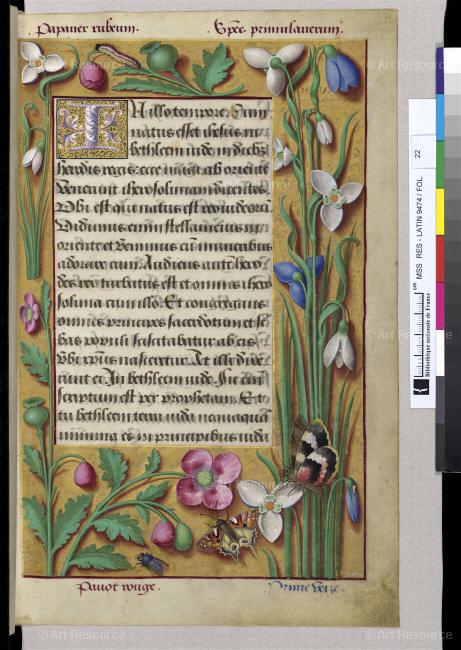 Papaver rubeum. Spes primulaverum.
In illo tempore. Cum
natus esset ihesus in
bethleem iude in diebꝫ
herodis regis: ecce magi ab oriente
Venerunt iherosolimam dicentes.
Ubi est qui natus est rex iudeorū.
Vidimus enim stellam eius in
oriente et Venimus cū muneribus
adorare eum. Audiens autē hero
des rex turbatus est et omnis ihero
solima cum illo. Et congregans
omnes principes sacerdotum et scͥ
bas populi sciscitabatur ab eis
Vbi xp̄us nasceretur. At illi dixe
runt ei. In bethleem iude. Sic enī
scriptum est per prophetam. Et
tu bethleem terra iuda nequaquā
minima es in principibus iuda
Pavot rouge.
22
MSS RES - LATIN 9474 / FOL.
cm
Bibliothèque nationale de France
© Art Resource
© Art Resource
© Art Resource
© Art Resource
© Art Resource
© Art Resource